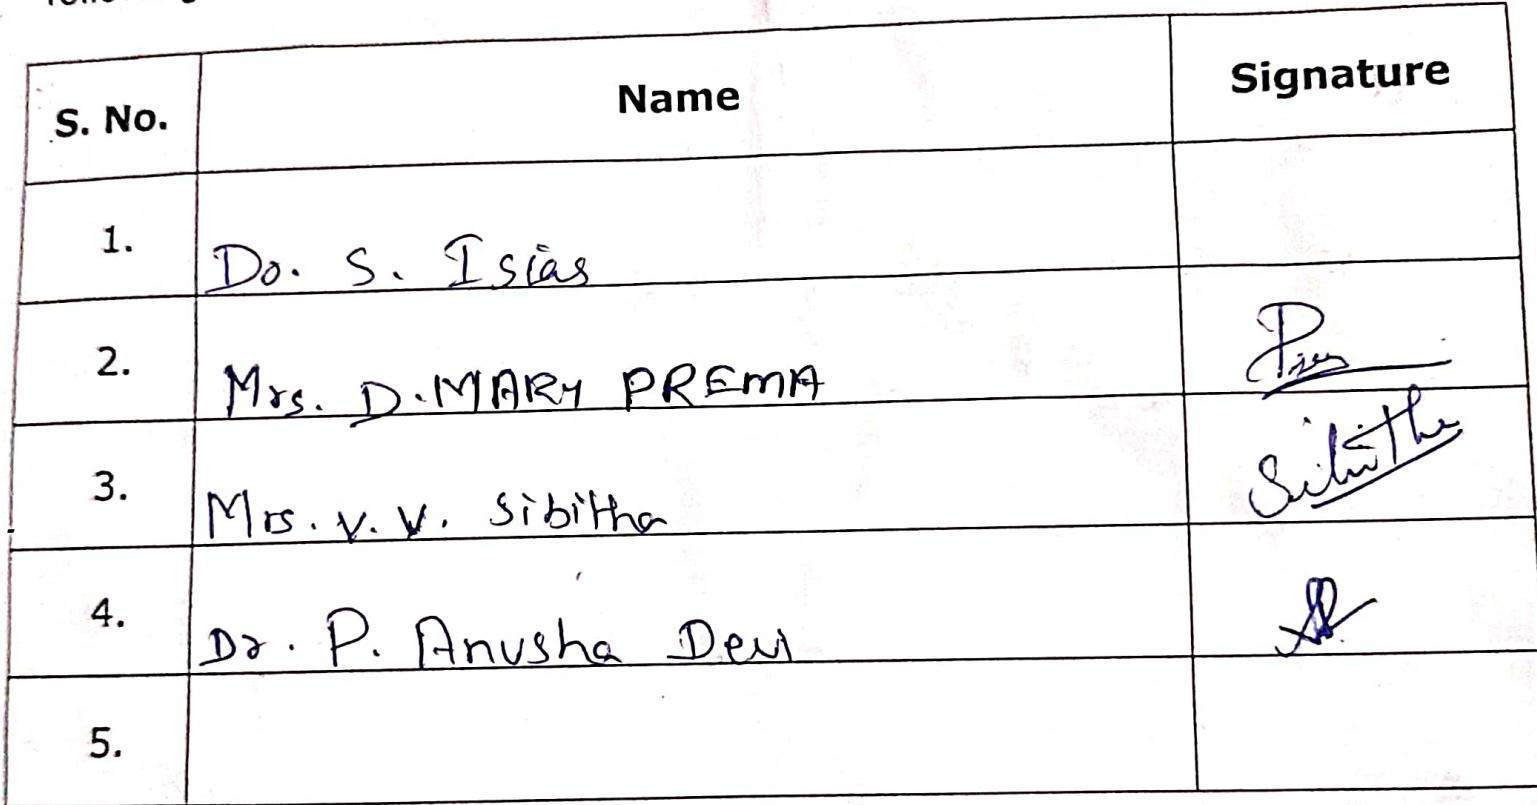 S. No. Name Signature
1. Dr. S. Isias
2. Mrs. D. MARY PREMA
3. Mrs. V. V. Sibitha Sibitha
4. Dr. P. Anusha Devi
5.